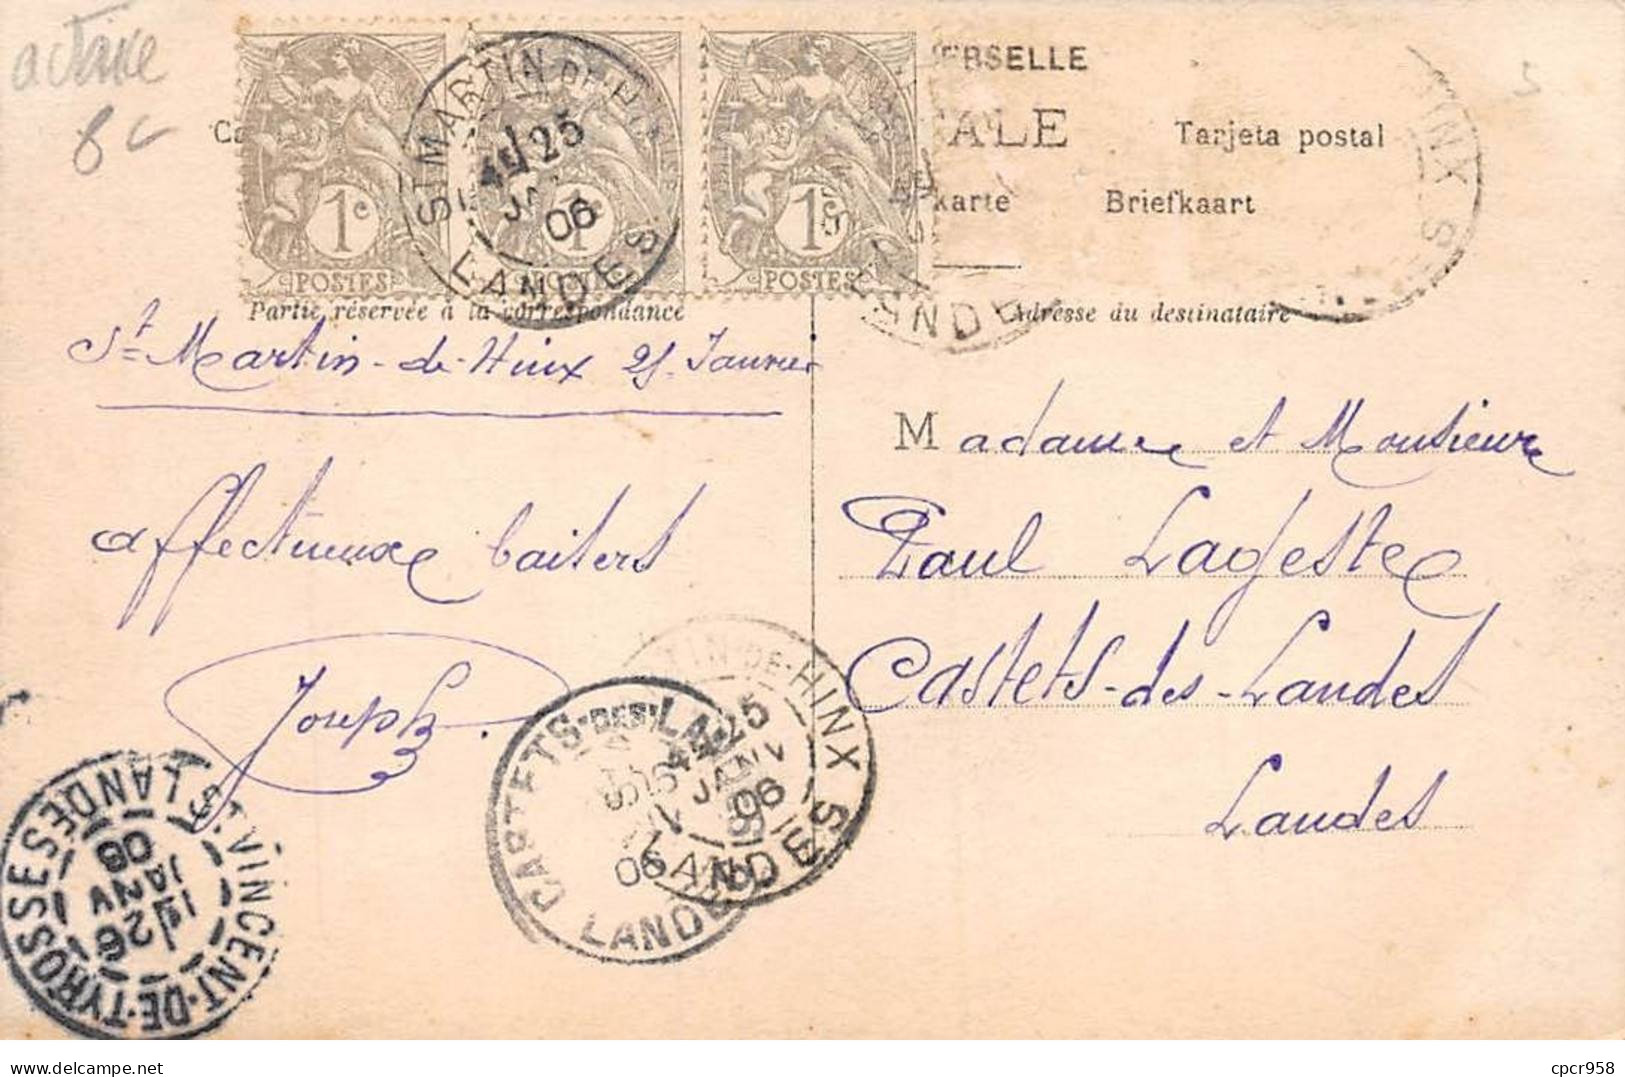 a taxe
6 c
5
POSTES
1c
POSTES
1c
POSTES
1c
ST MARTIN-DE-HINX
25
06
LANDES
ERSELLE
ALE
Tarjeta postal
karte
Briefkaart
INX
Partie réservée à la correspondance
Adresse du destinataire
St Martin-de-Hinx 25 Janvier
Madame et Monsieur
Paul Lageste
Castets-des-Landes
Landes
affectueux baisers
Joseph
CASTETS-DES-LANDES
06
LANDES
TIN-DE-HINX
25
JANV
06
LANDES
ST VINCENT-DE-TYROSSE
26
JANV
06
LANDES
cpcr958